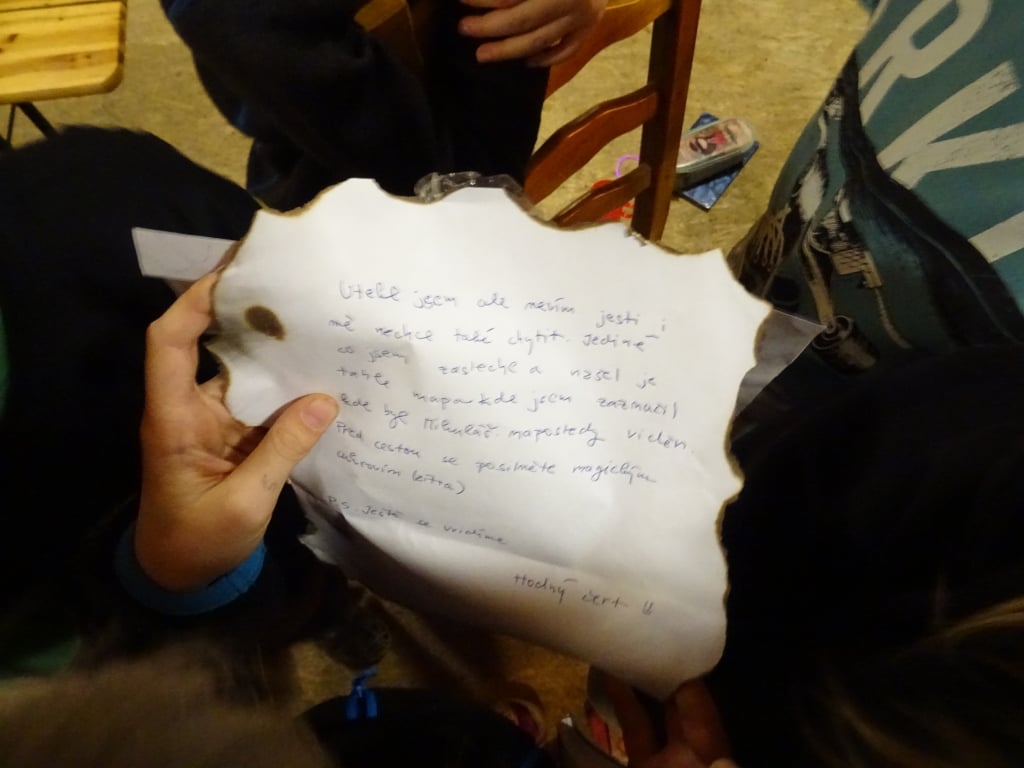 Utekl jsem ale nevím jestli
mě nechce také chytit. Jediné
co jsem zaslechl a našel je
tahle mapa kde jsem zaznačil
kde byl Mikuláš naposledy viděn.
Před cestou se posilněte magickým
P.S. Ještě se uvidíme
Hodný čert
RK